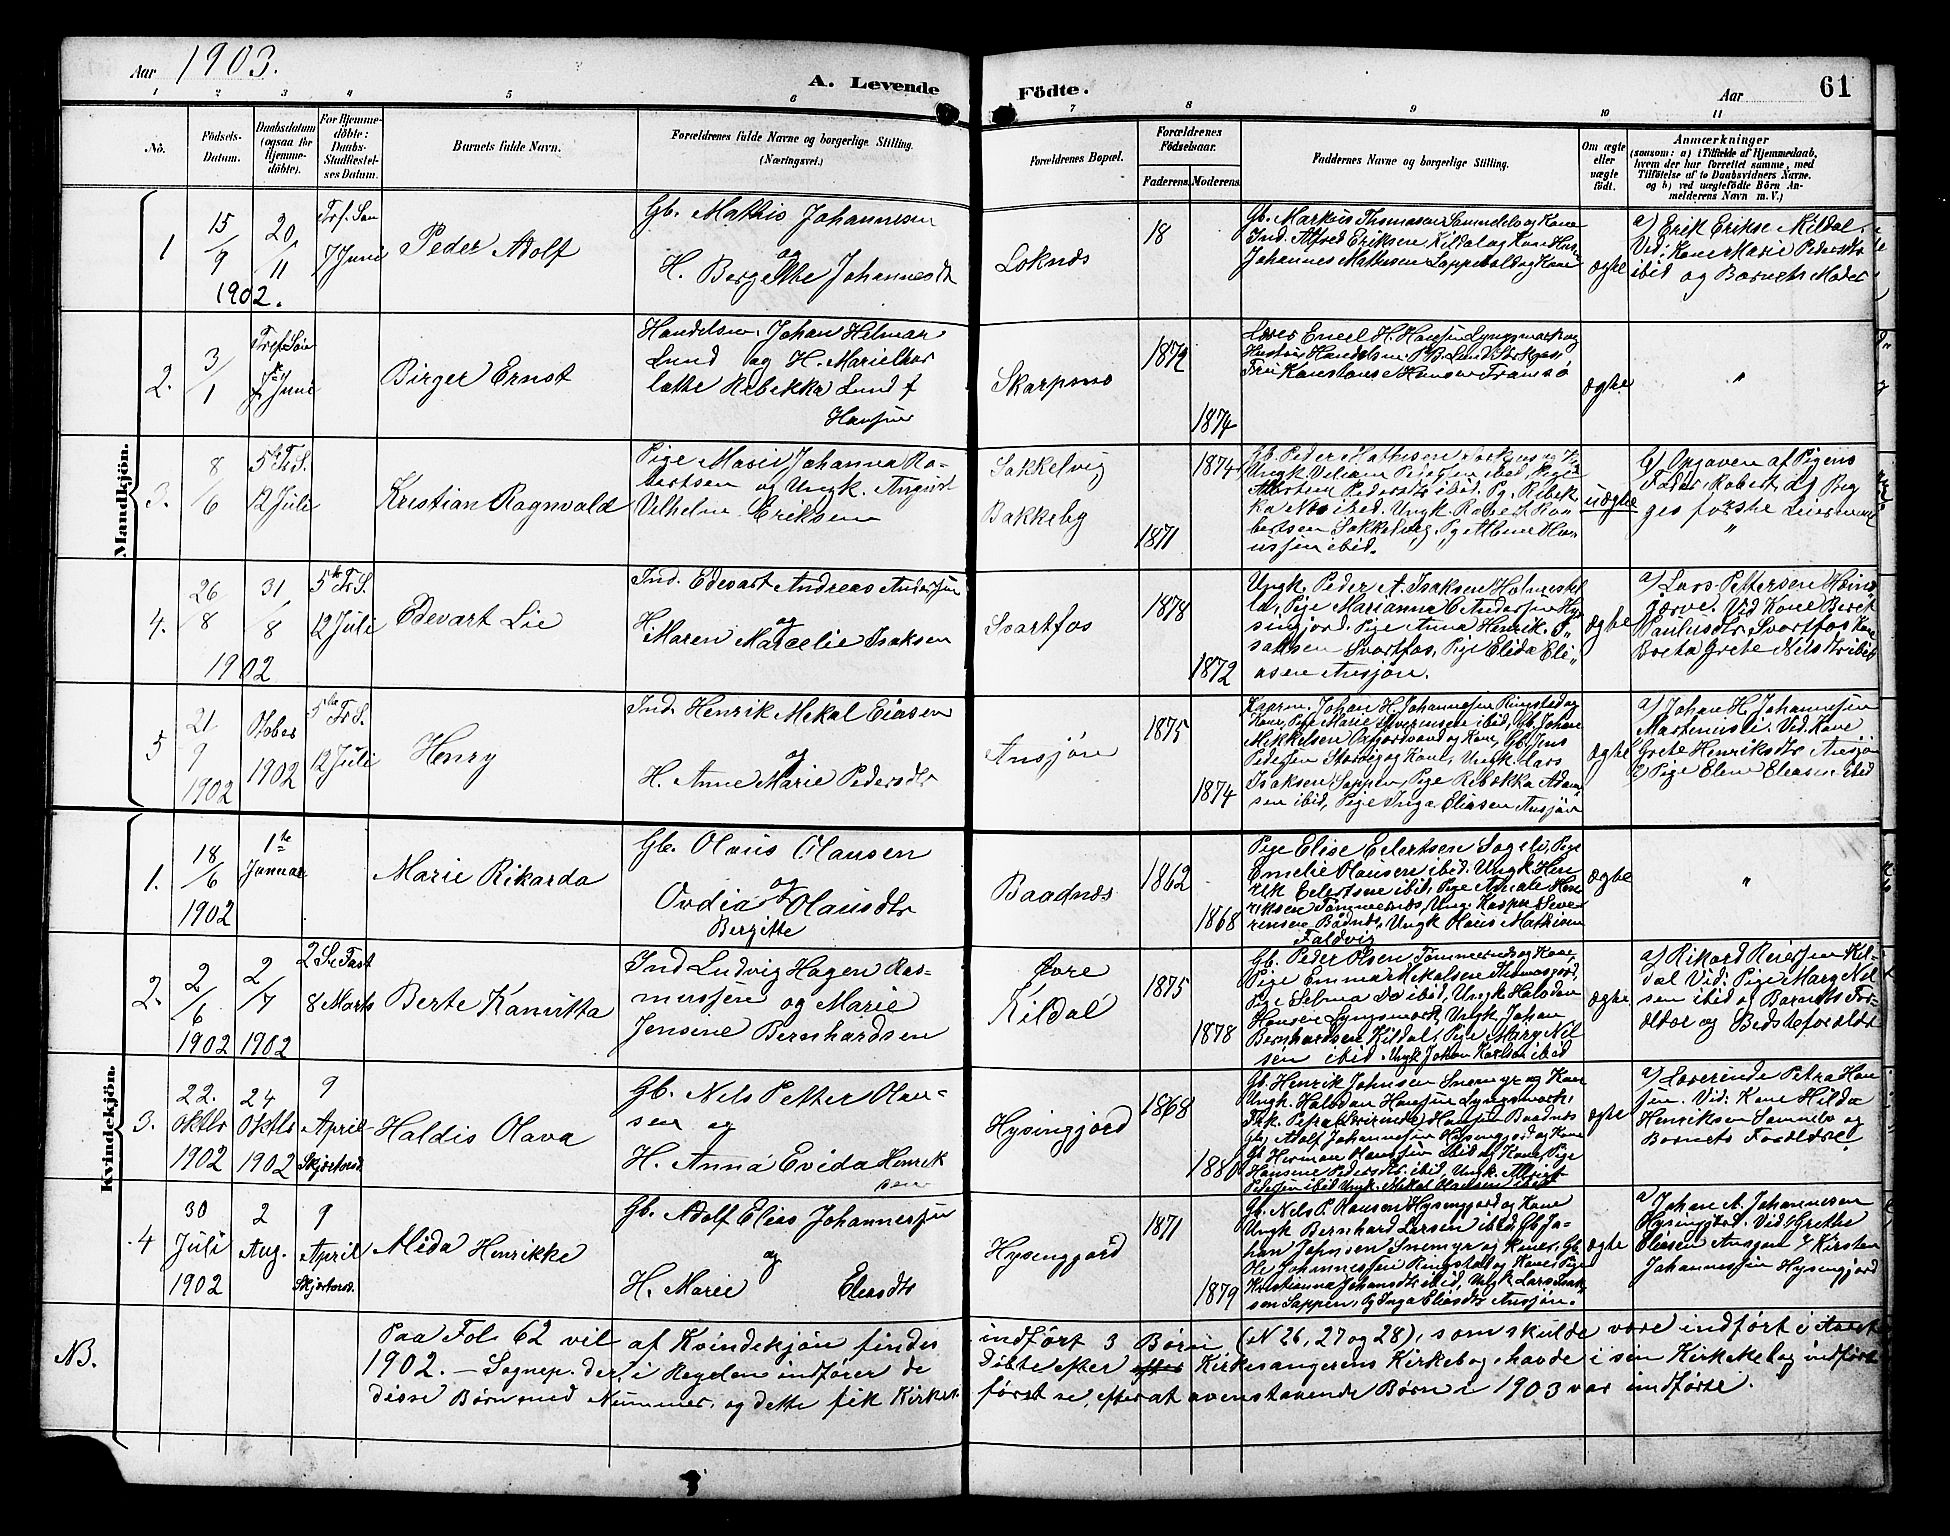 Aar 1903.
A. Levende Födte.
Aar
61
1 2 3 4 5 6 7 8 9 10 11
No.
Födsels-Datum.
Daabsdatum (ogsaa for Hjemmedöbte).
For Hjemmedöbte: Daabs-Stadfæstelses Datum.
Barnets fulde Navn.
Forældrenes fulde Navne og borgerlige Stilling. (Næringsvei.)
Forældrenes Bopæl.
Forældrenes Födselsaar.
Faderens.
Moderens.
Faddernes Navne og borgerlige Stilling.
Om ægte eller uægte födt.
Anmærkninger (saasom: a) i Tilfælde af Hjemmedaab, hvem der har forrettet samme, med Tilföielse af to Daabsvidners Navne. og b) ved uægtefödte Börn Anmelderens Navn m. V.)
Mandkjön.
1
15/9 1902.
20/11
7 Juni
Peder Adolf
Gb. Mathis Johannesen
og
H. Bergethe Johannesdt
Loknæs
18
Gb. Markus Thomasen Samuelsv og Kone
Ind. Alfred Eriksen Kildal og Kone
Johannes Mathisen Sappen og Kone
ægte
a) Erik Erikse Kildal.
Vid: Kone Marie Pedersdtr
ibid og Barnets Moder
2.
3/1
7 Juni
Birger Ernst
Handelsm. Johan Hilmar
Lund og H. Marie Char
lotte Rebekka Lund f
Hansen
Skarpsno
1872
1874
Lærer Emeel H. Hansen Lyngsmark og
Hustru, Handelsm. P. B. Lund
Fru Konstanse Hansen Tromsö
ægte
"
3.
8/6
5te Tr. S.
12 Juli
Kristian Ragnvald
Pige Marie Johanna Ro-
bertsen og Ungk. August
Vilhelm Eriksen
Sakkelvig
Bakkeby
1874
1871
Gb. Peder Mathisen
Ungk. Viliam Pedersen ibid. Pige
Pedersdtr ibid. Pg. Rebek
ka Nils ibid. Ungk. Robert Ro-
bertsen Sakkelvig Pg.
ibid.
uægte
b) Opgaven af Pigens
Fader, Robert, og Beg
ges forste Leiermaal
"
4.
26/8
31/8
1902
5te Tr. S.
12 Juli
Edevart Lie
Ind. Edevart Andreas Andersen
og
H. Maren Marcelie Isaksen
Svartfos
1878
1872
Ungk. Peder A. Isaksen Holmesle
Pige Marianna C Andersen Hy
singjord. Pige Anna Henrik. I"
saksen Svartfos, Pige Elida Eli"
asen Ansjön.
ægte
a) Lars Pettersen
Vid. Kone Beret
Paulusdtr. Svartfos Kone
Breta Grete Nilsdtr ibid
5
21/9
1902
Otober
1902
5te Tr. S.
12 Juli
Henry
Ind. Henrik Mekal Eiasen
og
H. Anne Marie Pedersdtr
Ansjön
1875
1874
Johan H. Johannessen Ringsted og
Kone, Pige Marie Sverensen ibid, Gb. Johan
Mikkelsen Oxfjordvand og Kone, Gb. Jens
Pedersen Storvig og Kone, Ungk. Lars
Isaksen Sappen, Pige Rebækka Adam
sen ibid, Pige Inga Eliasen Ansjön
ægte
a) Johan H. Johannessen
Vid. Kone
Grete Henriksdtr Ansjön
Pige Elen Eleasen ibid
Kvindekjön.
1.
18/6
1902
1te Januar
Marie Rikarda
Gb. Olaus Olausen
og
Ovdia Olausdtr
Bergitte
Baadnæs
1862
1868
Pige Elise Eilertsen Sageli, Pige
Emelie Olausen ibid. Ungk. Hen
rik Eilertsen ibid, Pige Amale Hen
riksen Tömmernæs, Ung. Kasper Seve-
rinsen Bådnæs, Ungk Hans Mathisen
Faldvig
ægte
"
2.
2/6
1902
2/7
1902
2 S. i Fast
8 Marts
Berte Kanutta
Ind Ludvig Hagen Ras-
mussen og Marie
Jensine Bernhardsen
Övre
Kildal
1875
1878
Gb. Peder Olsen Tömmernæs og Kone,
Pige Emma Mikalsen Thomasjord,
Pige Selma Do ibid, Ungk Halvdan
Hansen Lyngsmark, Ungk. Johan
Bernhardsen Kildal, Pige Mary Nil
sen ibid. Ungk Johan Karlsen ibid
ægte
a) Rikard Reiersen Kil-
dal Vid: Pige Mary Nil-
sen ibid og Barnets For-
ældre og Bedsteforældre
3.
22.
Oktbr
1902
24
Oktbr
1902
9
April
Skjærtorsd
Haldis Olava
Gb. Nels Petter Olau-
sen og
H. Anna Evida Henrik
sen
Hysingjord
1868
1880
Gb. Henrik Johnsen Snemyr og Kone
Ungk. Halvdan Hansen Lyngsmark,
Frk. Petra (Lærerinde) Hansen Baadnæs
Gb. Adolf Johannessen Hysingjord og Kone
Gb Herman Olaussen ibid og Kone, Pige
Hansine Pedersdtr. ibid, Ungk. Albrigt
Pedersen ibid Ungk. Mikal Olausen ibid
ægte
a) Lærerinde Petra Han
sen. Vid. Kone Hilda
Henriksen Samuelv og
Barnets Forældre
4
30
Juli
1902
2
Aug.
9
April
Skjærtorsd.
Alida Henrikke
Gb. Adolf Elias Johannessen
og
H. Marie Eleasdtr
Hysengjord
1871
1879
Gb. Nels P. Olausen Hysengjord og Kone
Ungk Bernhard Larsen ibid Gb Jo-
han Johnsen Snemyr og Kone, Gb.
Ole Johannessen Ringstad og Kone Pige
Kristianna Johansdtr ibid, Ungk Lars Isak
sen Sappen, Pg Inga Eliasdtr Ansjön.
ægte
a) Johan A. Johannesen
Hysingjord. Vid: Grethe
Eliesen Ansjön & Kirsten
Johannessen Hysengjord
NB.
Paa Fol. 62 vil af Kvindekjön findes indført 3 Børn (N 26, 27 og 28), som skulde være indført i Aaret
1902. – Sognep. der, i Regelen indfører de Døbte efter efter Kirkesangerens Kirkebog, havde i sin Kirkebog indført
disse Børn med Nummer, og dette fik Kirkes. først se, efter at ovenstaaende Børn i 1903 var indførte.